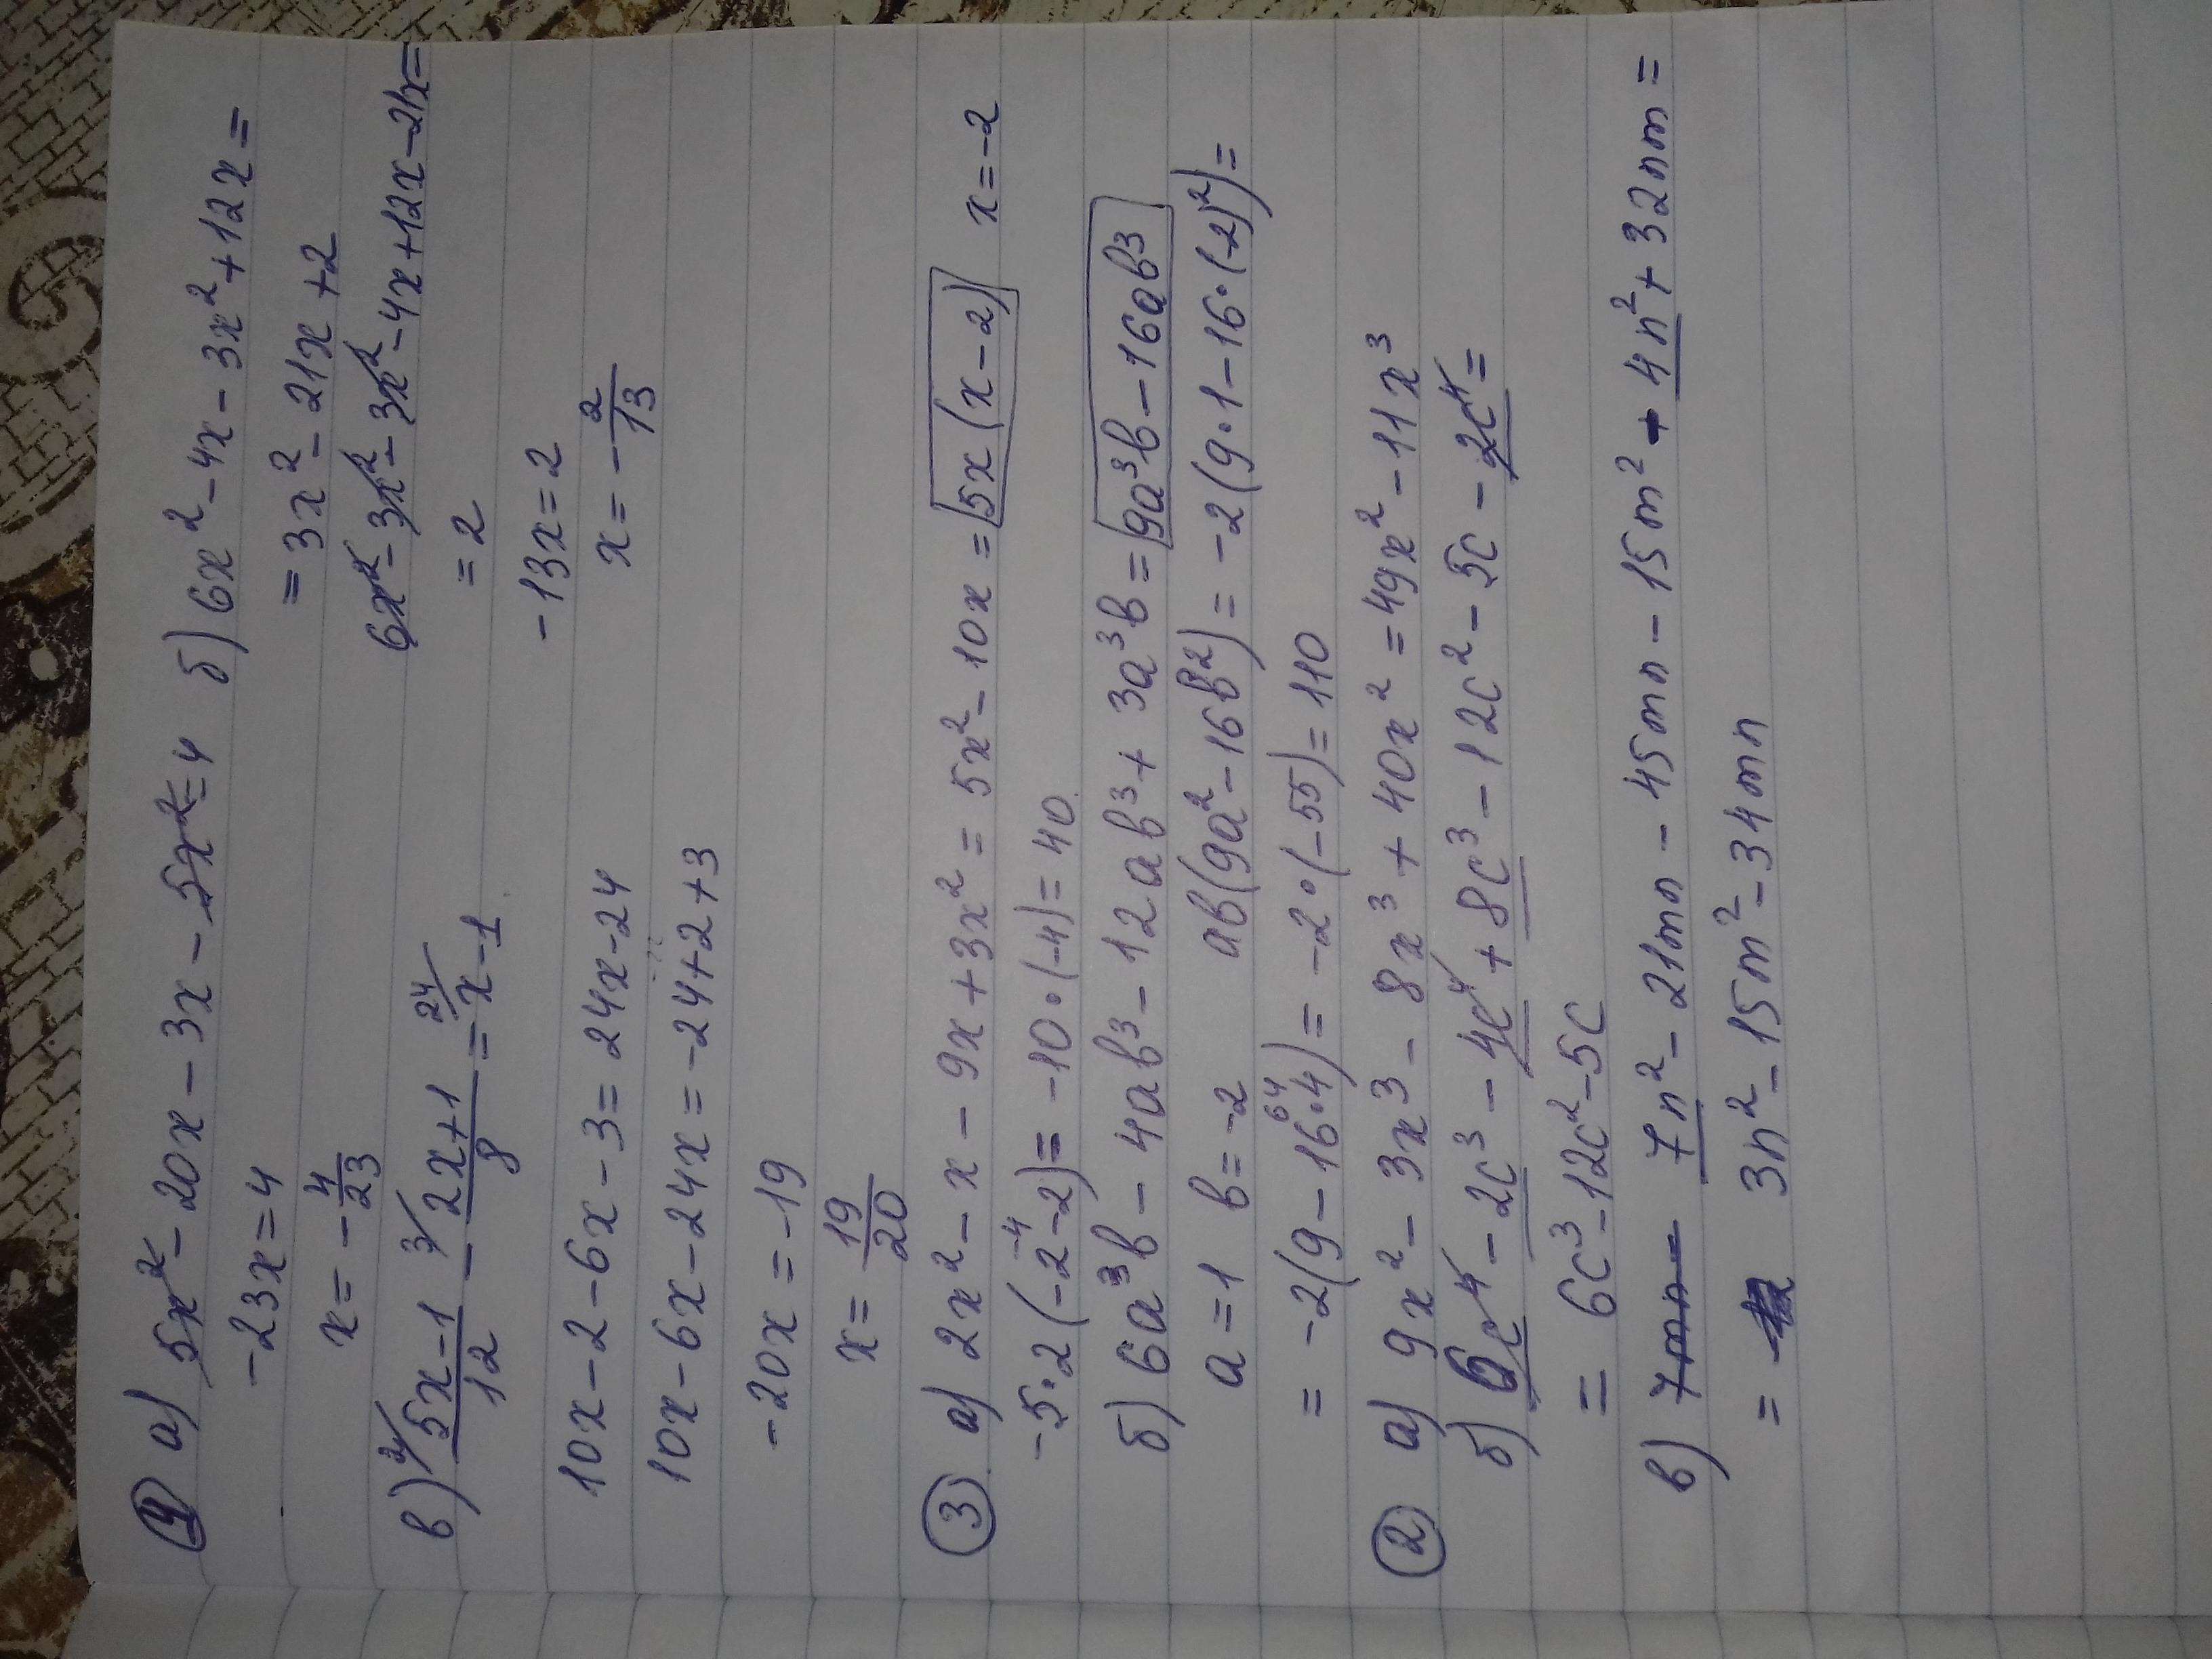 ④ а) 5x² - 20x - 3x - 5x² = 4 б) 6x² - 4x - 3x² + 12x =
-23x = 4 = 3x² - 21x + 2
x = -4/23 6x² - 3x² - 3x² - 4x + 12x - 21x =
в) 2/ (5x-1)/12 - 3/ (2x+1)/8 = 24/ x-1 = 2
10x - 2 - 6x - 3 = 24x - 24 -13x = 2
10x - 6x - 24x = -24 + 2 + 3 x = -2/13
-20x = -19
x = 19/20
③ а) 2x² - x - 9x + 3x² = 5x² - 10x = 5x(x-2) x = -2
-5·2(-2-2) = -10·(-4) = 40
б) 6a³b - 4ab³ - 12ab³ + 3a³b = 9a³b - 16ab³
a = 1 b = -2 ab(9a² - 16b²) = -2(9·1 - 16·(-2)²) =
= -2(9 - 16·4) = -2·(-55) = 110
② а) 9x² - 3x³ - 8x³ + 40x² = 49x² - 11x³
б) 6c⁴ - 2c³ - 4c⁴ + 8c³ - 12c² - 5c - 2c⁴ =
= 6c³ - 12c² - 5c
в) 7mn - 7n² - 21mn - 45mn - 15m² - 4n² + 32nm =
= 3n² - 15m² - 34mn